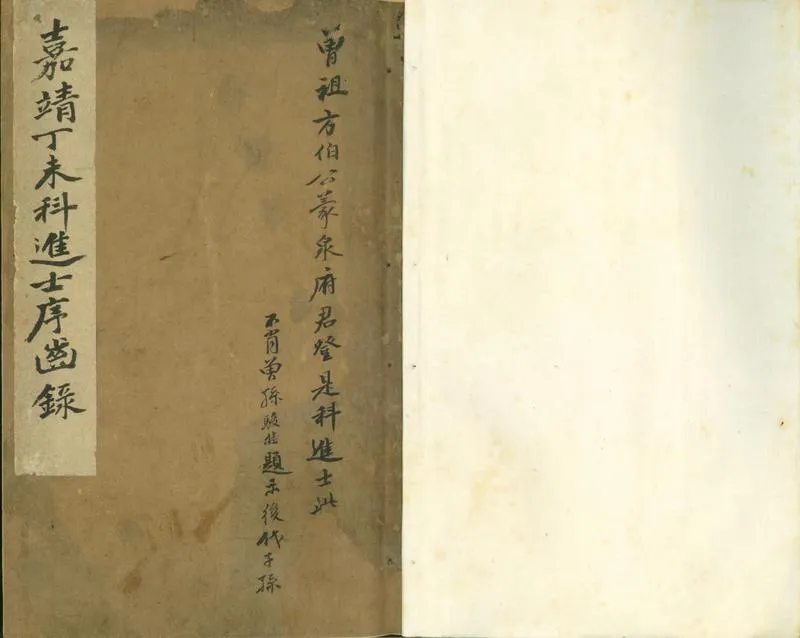 曾祖方伯公蒙泉府君登是科進士此
不肖曾孫駿㽵題示後代子孫
嘉靖丁未科進士序齒錄